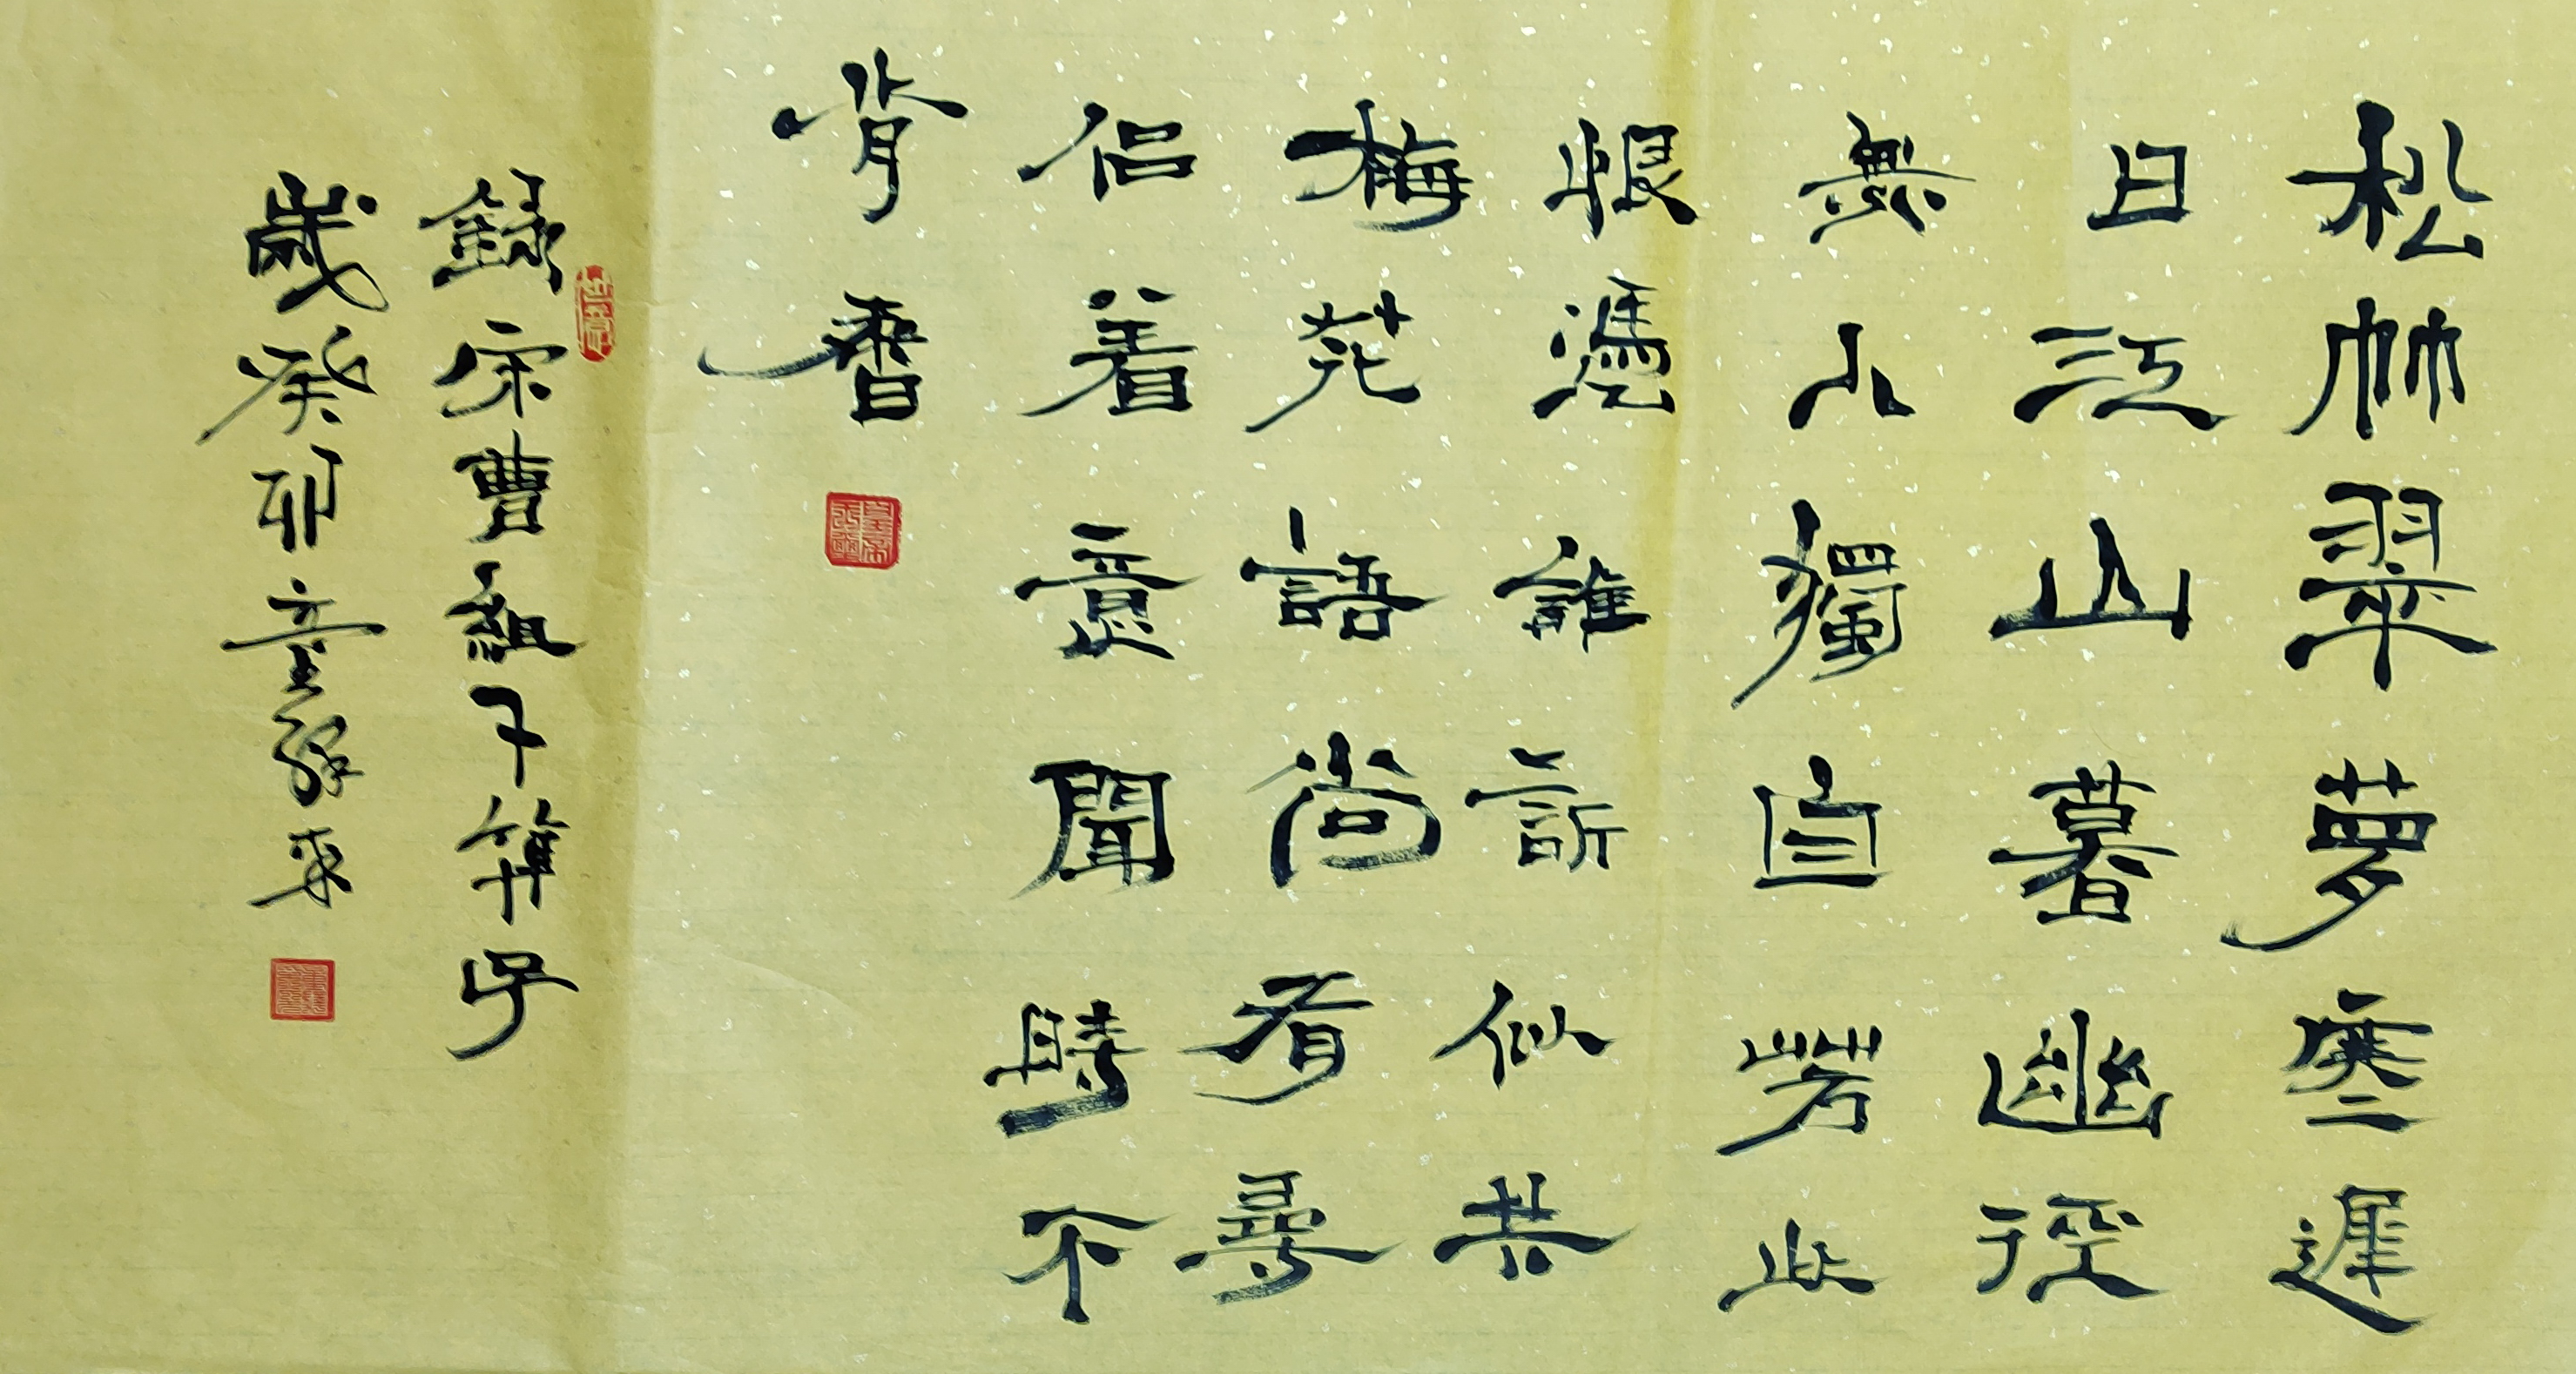 松竹翠萝寒遲
日江山暮幽徑
無人獨自芳此
恨凭誰訴似共
梅花語尚有尋
侣着意聞時不
肯香
録宋曹組卜算子
歲癸卯童辉来